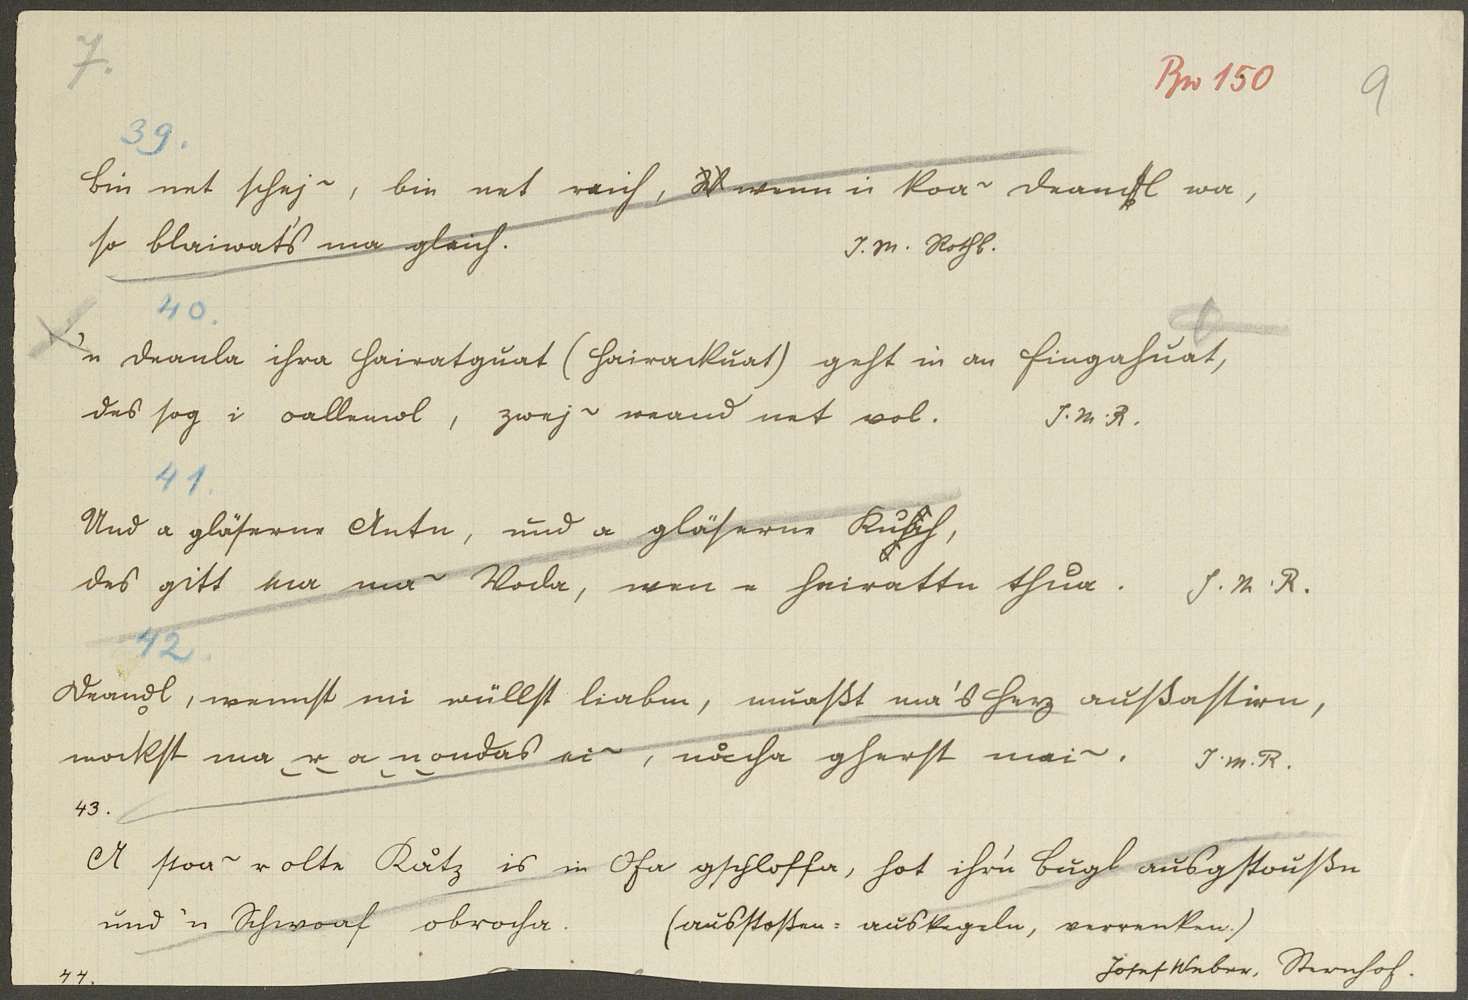 7.
Bw 150
9
39.
bin net schej~, bin net reich, wenn i koa~ Deandl wa,
so blaiwat's ma gleich.
J. M. Rothb.
40.
'n Deanla ihra Hairatguat (Hairackuat) geht in an Fingahuat,
des sog i oallemol, zwej~ weand net vol.
J. M. R.
41.
Und a gläserne Antn, und a gläserne Kuh,
des gitt ma ma~ Voda, wen e heirattn thua.
J. M. R.
42.
Deandl, wennst mi wüllst liabm, muaßt ma's Herz außastirn,
mockst ma r a nondas ei~, nåcha gherst mei~.
J. M. R.
43.
A stoa~ r olte Kåtz is in Ofa gschloffa, hot ihr'n Bugl ausgstoußn
und 'n Schwoaf obrocha.
(ausstoßen = auskegeln, verrenken.)
Josef Weber, Sternhof.
44.